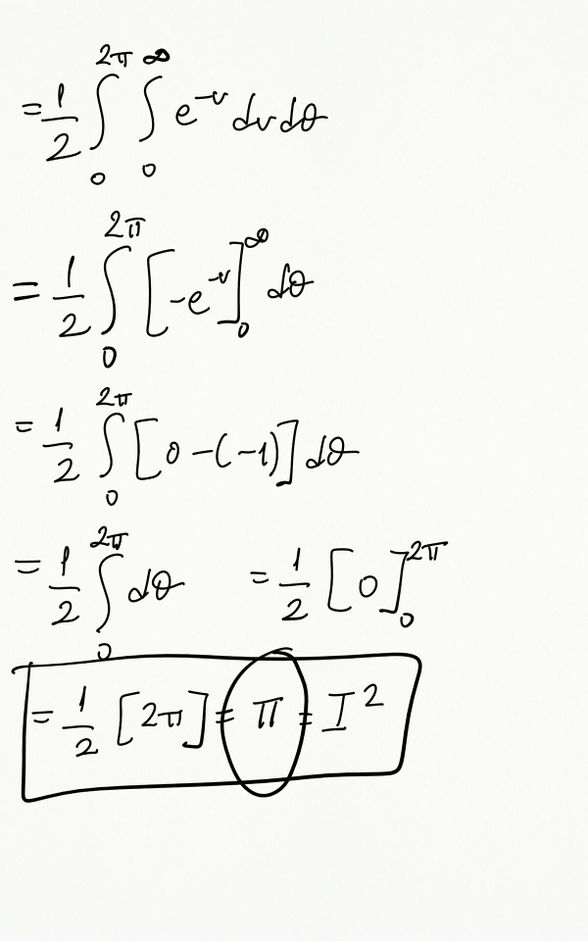 = 1/2 ∫₀^2π ∫₀^∞ e^-v dv dθ
= 1/2 ∫₀^2π [-e^-v]₀^∞ dθ
= 1/2 ∫₀^2π [0-(-1)] dθ
= 1/2 ∫₀^2π dθ = 1/2 [0]₀^2π
= 1/2 [2π] = π = I²